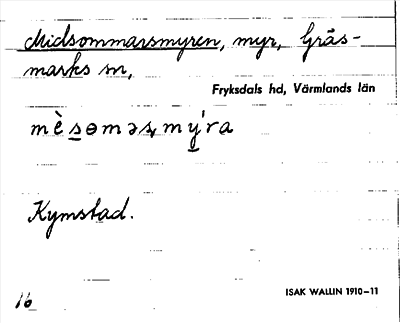 Midsommarsmyren, myr, Gräs-
marks sn,
Fryksdals hd, Värmlands län
mèsɵməsₔmý̱ra
Kymstad.
16
ISAK WALLIN 1910–11